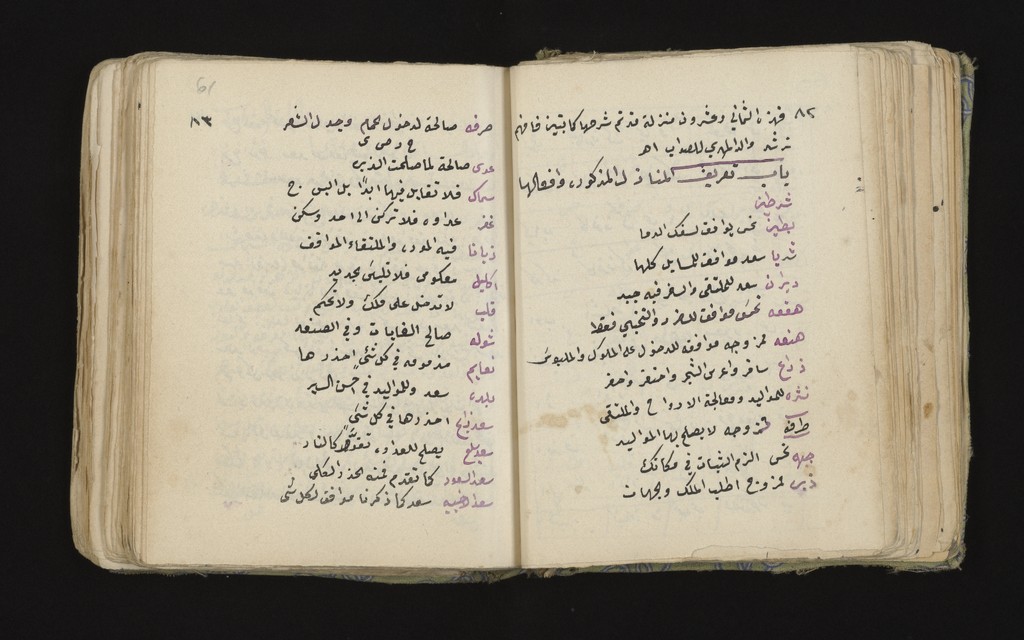 ٨٢ فهذه الثماني وعشرون منزلة قد تم شرحها كما تبين فافهم
ترشد والله الهادي للصواب اهـ
باب تعريف المنازل المذكوره وافعالها
شرطين
بطين نحس يوافق لسفك الدما
ثريا سعد موافق للمسايل كلها
دبران سعد للملتقى والسفر فيه جيد
هقعه نحس موافق للسفر والتجني فقط
هنعه ممزوجه موافقه للدخول على الملوك والملبوس
ذراع سافر واغرس الشجر واحتقر واحفر
نثره للمواليد ومعالجة الارواح والملتقى
طرفه ممزوجه لا يصلح بها المواليد
جبهه نحس الزم الثبات في مكانك
زبره ممزوج اطلب الملك وبجهات
61
٨٣
صرفه صالحة لدخول حمام وجدل الشعر
عوى صالحة لما صلحت الذبره
سماك فلا تقابل فيها ابدا بل البس
غفر عداوه فلا تركن الى احد وسكن
زبانا فيه المورد والملتقا والمواقف
اكليل معكوس فلا تلبس بجديد
قلب لا تدخل على ملك ولا تحكم
شوله صالح الغايات وفي الصنعه
نعايم مذمومه في كل شئ احذرها
بلده سعد وللمواليد في احسن السير
سعد ذابح احذرها في كل شئ
سعد بلع يصلح للعداوه تقد كالنار
سعد السعود كما تقدم فمنه الحذر الكلي
سعد الاخبيه سعد كما ذكرنا موافق لكل شئ